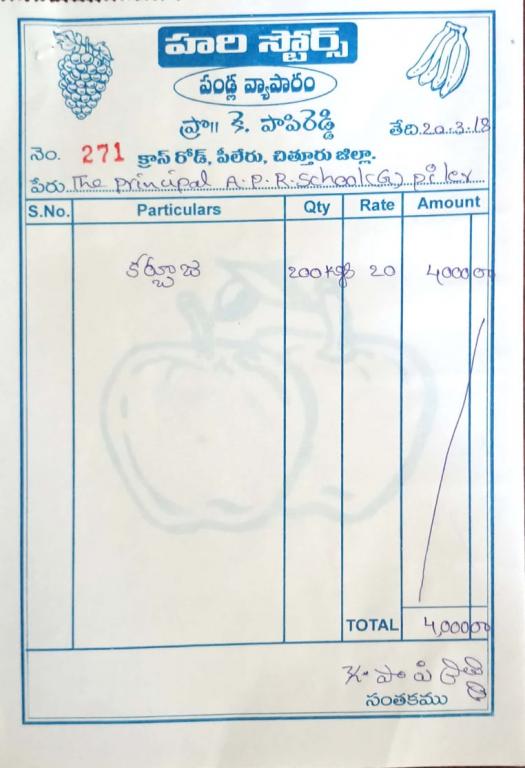 హరి స్టోర్స్
పండ్ల వ్యాపారం
ప్రొ॥ కె. పాపిరెడ్డి
తేది.20.3.18
నెం. 271 క్రాస్ రోడ్, పీలేరు, చిత్తూరు జిల్లా.
పేరు. The principal A.P.R. School (G) piler
S.No. Particulars Qty Rate Amount
కర్బూజ 200 kgs 20 4000 00
TOTAL 4,000 00
కె. పాపి రెడ్డి
సంతకము